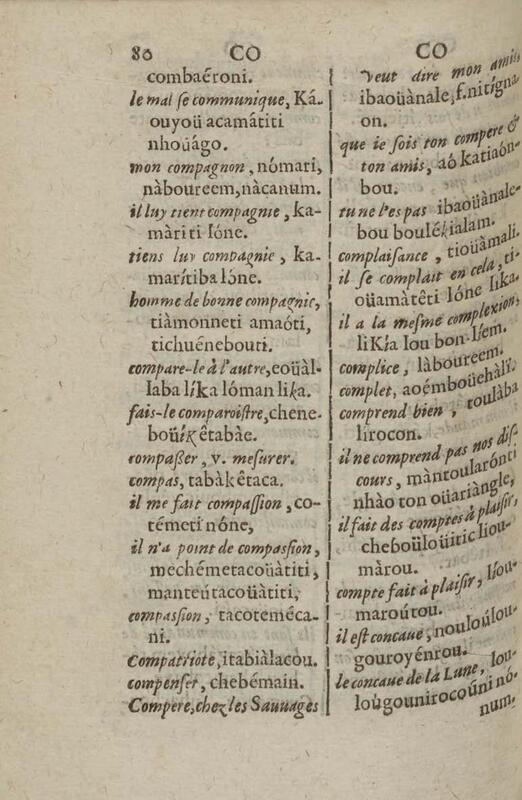 80 CO
combaéroni.
le mal ſe communique, Ká-
ouyoü acamátiti
nhoüágo.
mon compagnon, nómari,
nàboureem, nàcanum.
il luy tient compagnie, ka-
màriti lóne.
tiens luy compagnie, ka-
marítiba lóne.
homme de bonne compagnie,
tiàmonneti amaóti,
tichuénebouti.
compare-le à l'autre, eoüàl-
laba líka lóman lika.
fais-le comparoiſtre, chene-
boüíkêtabàe.
compaßer, v. meſurer.
compas, tabàkêtaca.
il me fait compaſſion, co-
témeti nóne,
il n'a point de compaſsion,
mechémetacoüàtiti,
manteútacoüàtiti,
compaſsion, tacoteméca-
ni.
Compatriote, itabiàlacou.
compenſer, chebémain.
Compere, chez les Sauuages
CO
veut dire mon amis,
ibaoüànale, f. nitígna-
on.
que ie ſois ton compere &
ton amis, aó katiaón-
bou.
tu ne l'es pas ibaoüànale-
bou boulékialam.
complaiſance, tiouàmali.
il ſe complait en cela, ti-
oüamàtêti lóne lika.
il a la meſme complexion,
liKía lou bon-líem.
complice, làboureem.
complet, aoémboüehàli.
comprend bien, toulàba
lírocon.
il ne comprend pas nos diſ-
cours, màntoularónti
nhào ton oüariàngle,
il fait des comptes à plaiſir,
cheboüloüitic liou-
màrou.
compte fait à plaiſir, líou-
maroútou.
il eſt concaue, nouloúlou-
gouroyénrou.
le concaue de la Lune, lou-
loúgounirocoúni nó-
num.